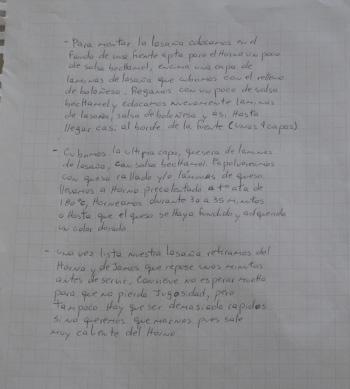 - Para montar la lasaña colocamos en el
fondo de una fuente apta para el Horno un poco
de salsa bechamel, encima una capa de
laminas de lasaña que cubrimos con el relleno
de boloñesa. Regamos con un poco de salsa
bechamel y colocamos nuevamente laminas
de lasaña, salsa de boloñesa y asi Hasta
llegar casi al borde de la fuente (unas 4 capas)
- Cubrimos la ultima capa, que sera de laminas
de lasaña, con salsa bechamel. Espolvoreamos
con queso rallado y/o láminas de queso
llevamos a Horno precalentado a tª ata de
180°C, Horneamos durante 30 a 35 minutos
o Hasta que el queso se Haya fundido y adquirido
un color dorado
- una vez lista nuestra lasaña retiramos del
Horno y dejamos que repose unos minutos
antes de servir, conviene no esperar mucho
para que no pierda Jugosidad, pero
tampoco Hay que ser demasiado rapidos
si no queremos quemarnos pues sale
muy caliente del Horno.